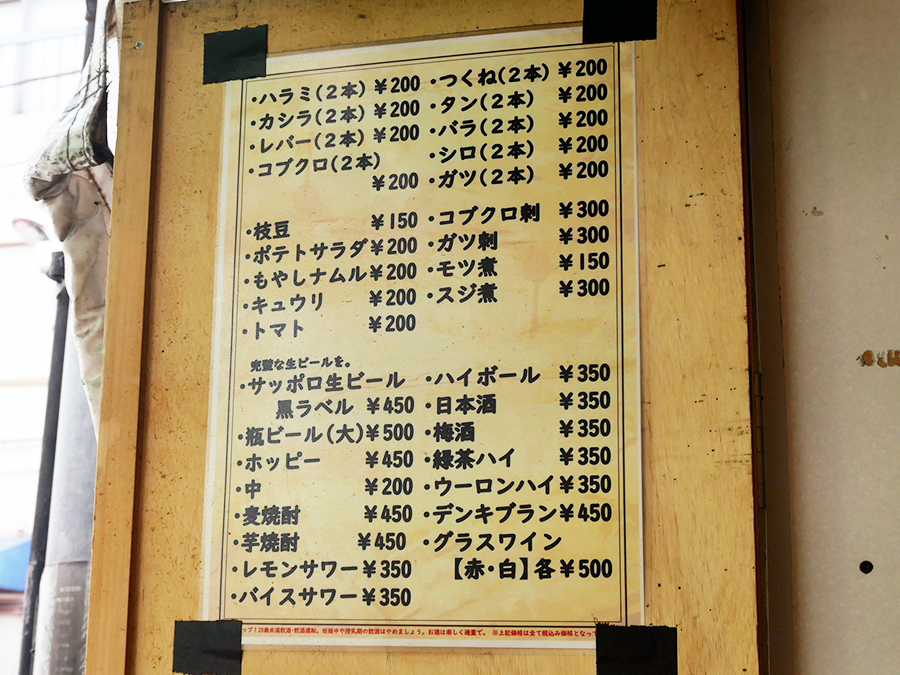 ・ハラミ(2本) ¥200
・カシラ(2本) ¥200
・レバー(2本) ¥200
・コブクロ(2本)
¥200
・つくね(2本) ¥200
・タン(2本) ¥200
・バラ(2本) ¥200
・シロ(2本) ¥200
・ガツ(2本) ¥200
・枝豆 ¥150
・ポテトサラダ ¥200
・もやしナムル ¥200
・キュウリ ¥200
・トマト ¥200
・コブクロ刺 ¥300
・ガツ刺 ¥300
・モツ煮 ¥150
・スジ煮 ¥300
完璧な生ビールを。
・サッポロ生ビール
黒ラベル ¥450
・瓶ビール(大) ¥500
・ホッピー ¥450
・中 ¥200
・麦焼酎 ¥450
・芋焼酎 ¥450
・レモンサワー ¥350
・バイスサワー ¥350
・ハイボール ¥350
・日本酒 ¥350
・梅酒 ¥350
・緑茶ハイ ¥350
・ウーロンハイ ¥350
・デンキブラン ¥450
・グラスワイン
【赤・白】各¥500
ップ|20歳未満飲酒・飲酒運転、妊娠中や授乳期の飲酒はやめましょう。お酒は楽しく適量で。 ※上記価格は全て税込み価格となって